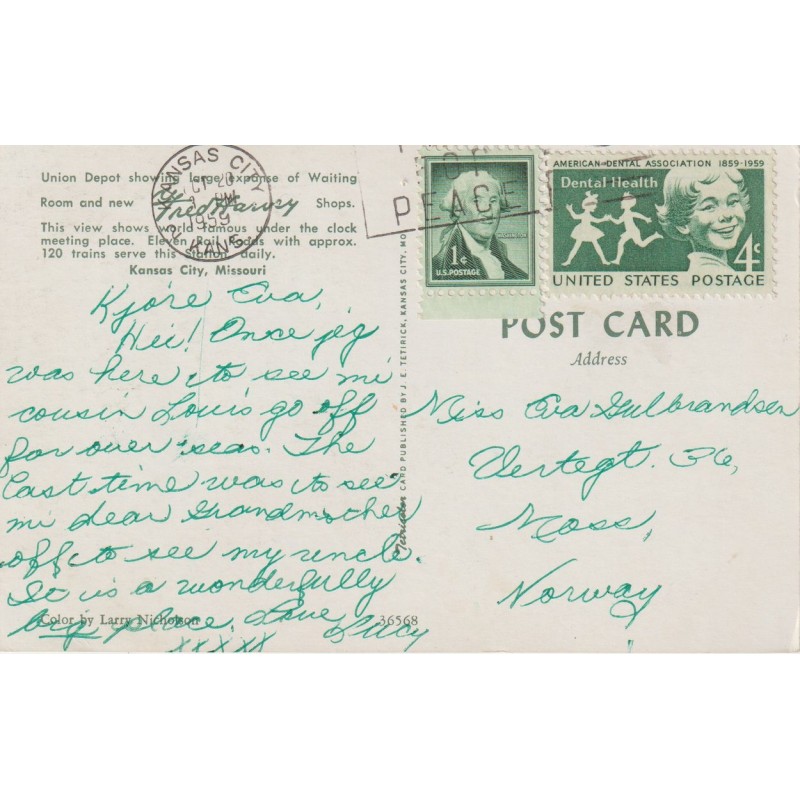 Union Depot showing large expanse of Waiting
Room and new Fred Harvey Shops.
This view shows world famous under the clock
meeting place. Eleven Rail Roads with approx.
120 trains serve this station daily.
Kansas City, Missouri
KANSAS CITY
OCT 20
PM
1959
KANS.
OF
PEACE
1¢
U.S. POSTAGE
WASHINGTON
AMERICAN DENTAL ASSOCIATION 1859-1959
Dental Health
4¢
UNITED STATES POSTAGE
Kjøre Eva,
Hei! Once jeg
was here to see mi
cousin Louis go off
for over seas. The
last time was to see
mi dear Grandmother
off to see my uncle.
It is a wonderfully
big place. Love Lucy
XXXXX
Color by Larry Nicholson
36568
CARD PUBLISHED BY J. E. TETIRICK, KANSAS CITY, MO.
POST CARD
Address
Miss Eva Gulbrandsen
Vertegt. 36,
Moss,
Norway